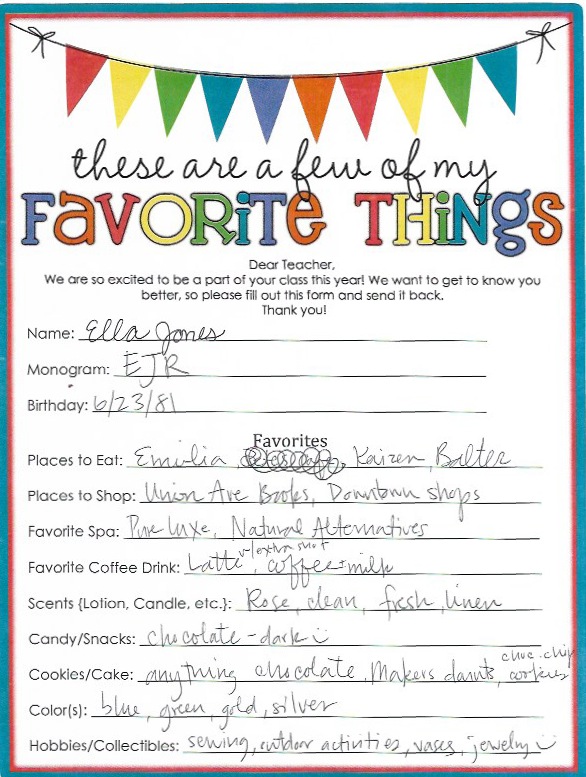 these are a few of my
FAVORiTe THiNgs
Dear Teacher,
We are so excited to be a part of your class this year! We want to get to know you
better, so please fill out this form and send it back.
Thank you!
Name: Ella Jones
Monogram: EJR
Birthday: 6/23/81
Favorites
Places to Eat: Emilia, Kaizen, Balter
Places to Shop: Union Ave Books, Downtown shops
Favorite Spa: Pure Luxe, Natural Alternatives
w/extra shot
Favorite Coffee Drink: Latte, coffee + milk
Scents {Lotion, Candle, etc.}: Rose, clean, fresh, linen
Candy/Snacks: chocolate - dark
choc. chip
Cookies/Cake: anything chocolate, Makers donuts, cookies
Color(s): blue, green, gold, silver
Hobbies/Collectibles: sewing, outdoor activities, vases, jewelry